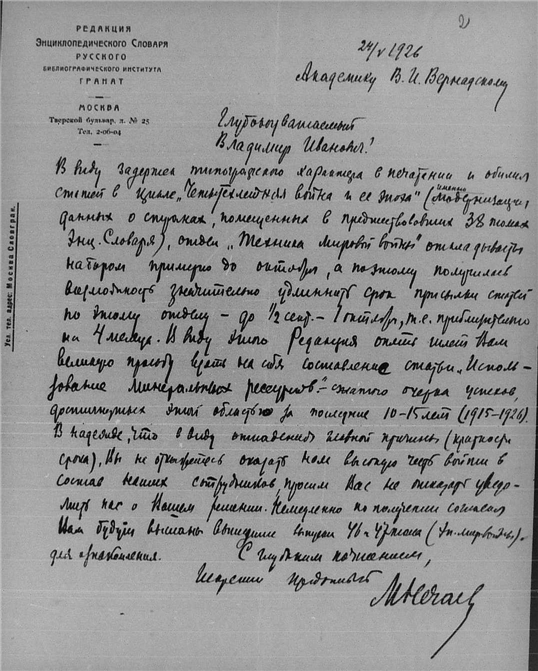 РЕДАКЦИЯ
ЭНЦИКЛОПЕДИЧЕСКОГО СЛОВАРЯ
РУССКОГО
БИБЛИОГРАФИЧЕСКОГО ИНСТИТУТА
ГРАНАТ
МОСКВА
Тверской бульвар, д. № 25
Тел. 2-06-04
Усл. тел. адрес: Москва Словгран.
2
24/V 1926
Академику В. И. Вернадскому
Глубокоуважаемый
Владимир Иванович!
В виду задержек типографского характера в печатании и обилия
статей в цикле „Четырехлетняя война и ее эпоха" (именно модернизации
данных о странах, помещенных в предшествовавших 38 томах
Энц. Словаря), отдел „Техника мировой войны" откладывается
набором примерно до октября, а поэтому получилась
возможность значительно удлинить срок присылки статей
по этому отделу – до 1/2 сент. – 1 октября, т.е. приблизительно
на 4 месяца. В виду этого Редакция опять шлет Вам
великую просьбу взять на себя составление статьи „Исполь-
зование минеральных рессурсов" – сжатого очерка успехов,
достигнутых этой областью за последние 10-15 лет (1915-1926).
В надежде, что в виду отпадения главной причины (краткость
срока), Вы не откажетесь оказать нам высокую честь войти в
состав наших сотрудников, просим Вас не отказать уведо-
мить нас о Вашем решении. Немедленно по получении согласия
Вам будут высланы вышедшие выпуски 46 и 47 тома
для ознакомления. С глубоким почтением,
Искренно преданный